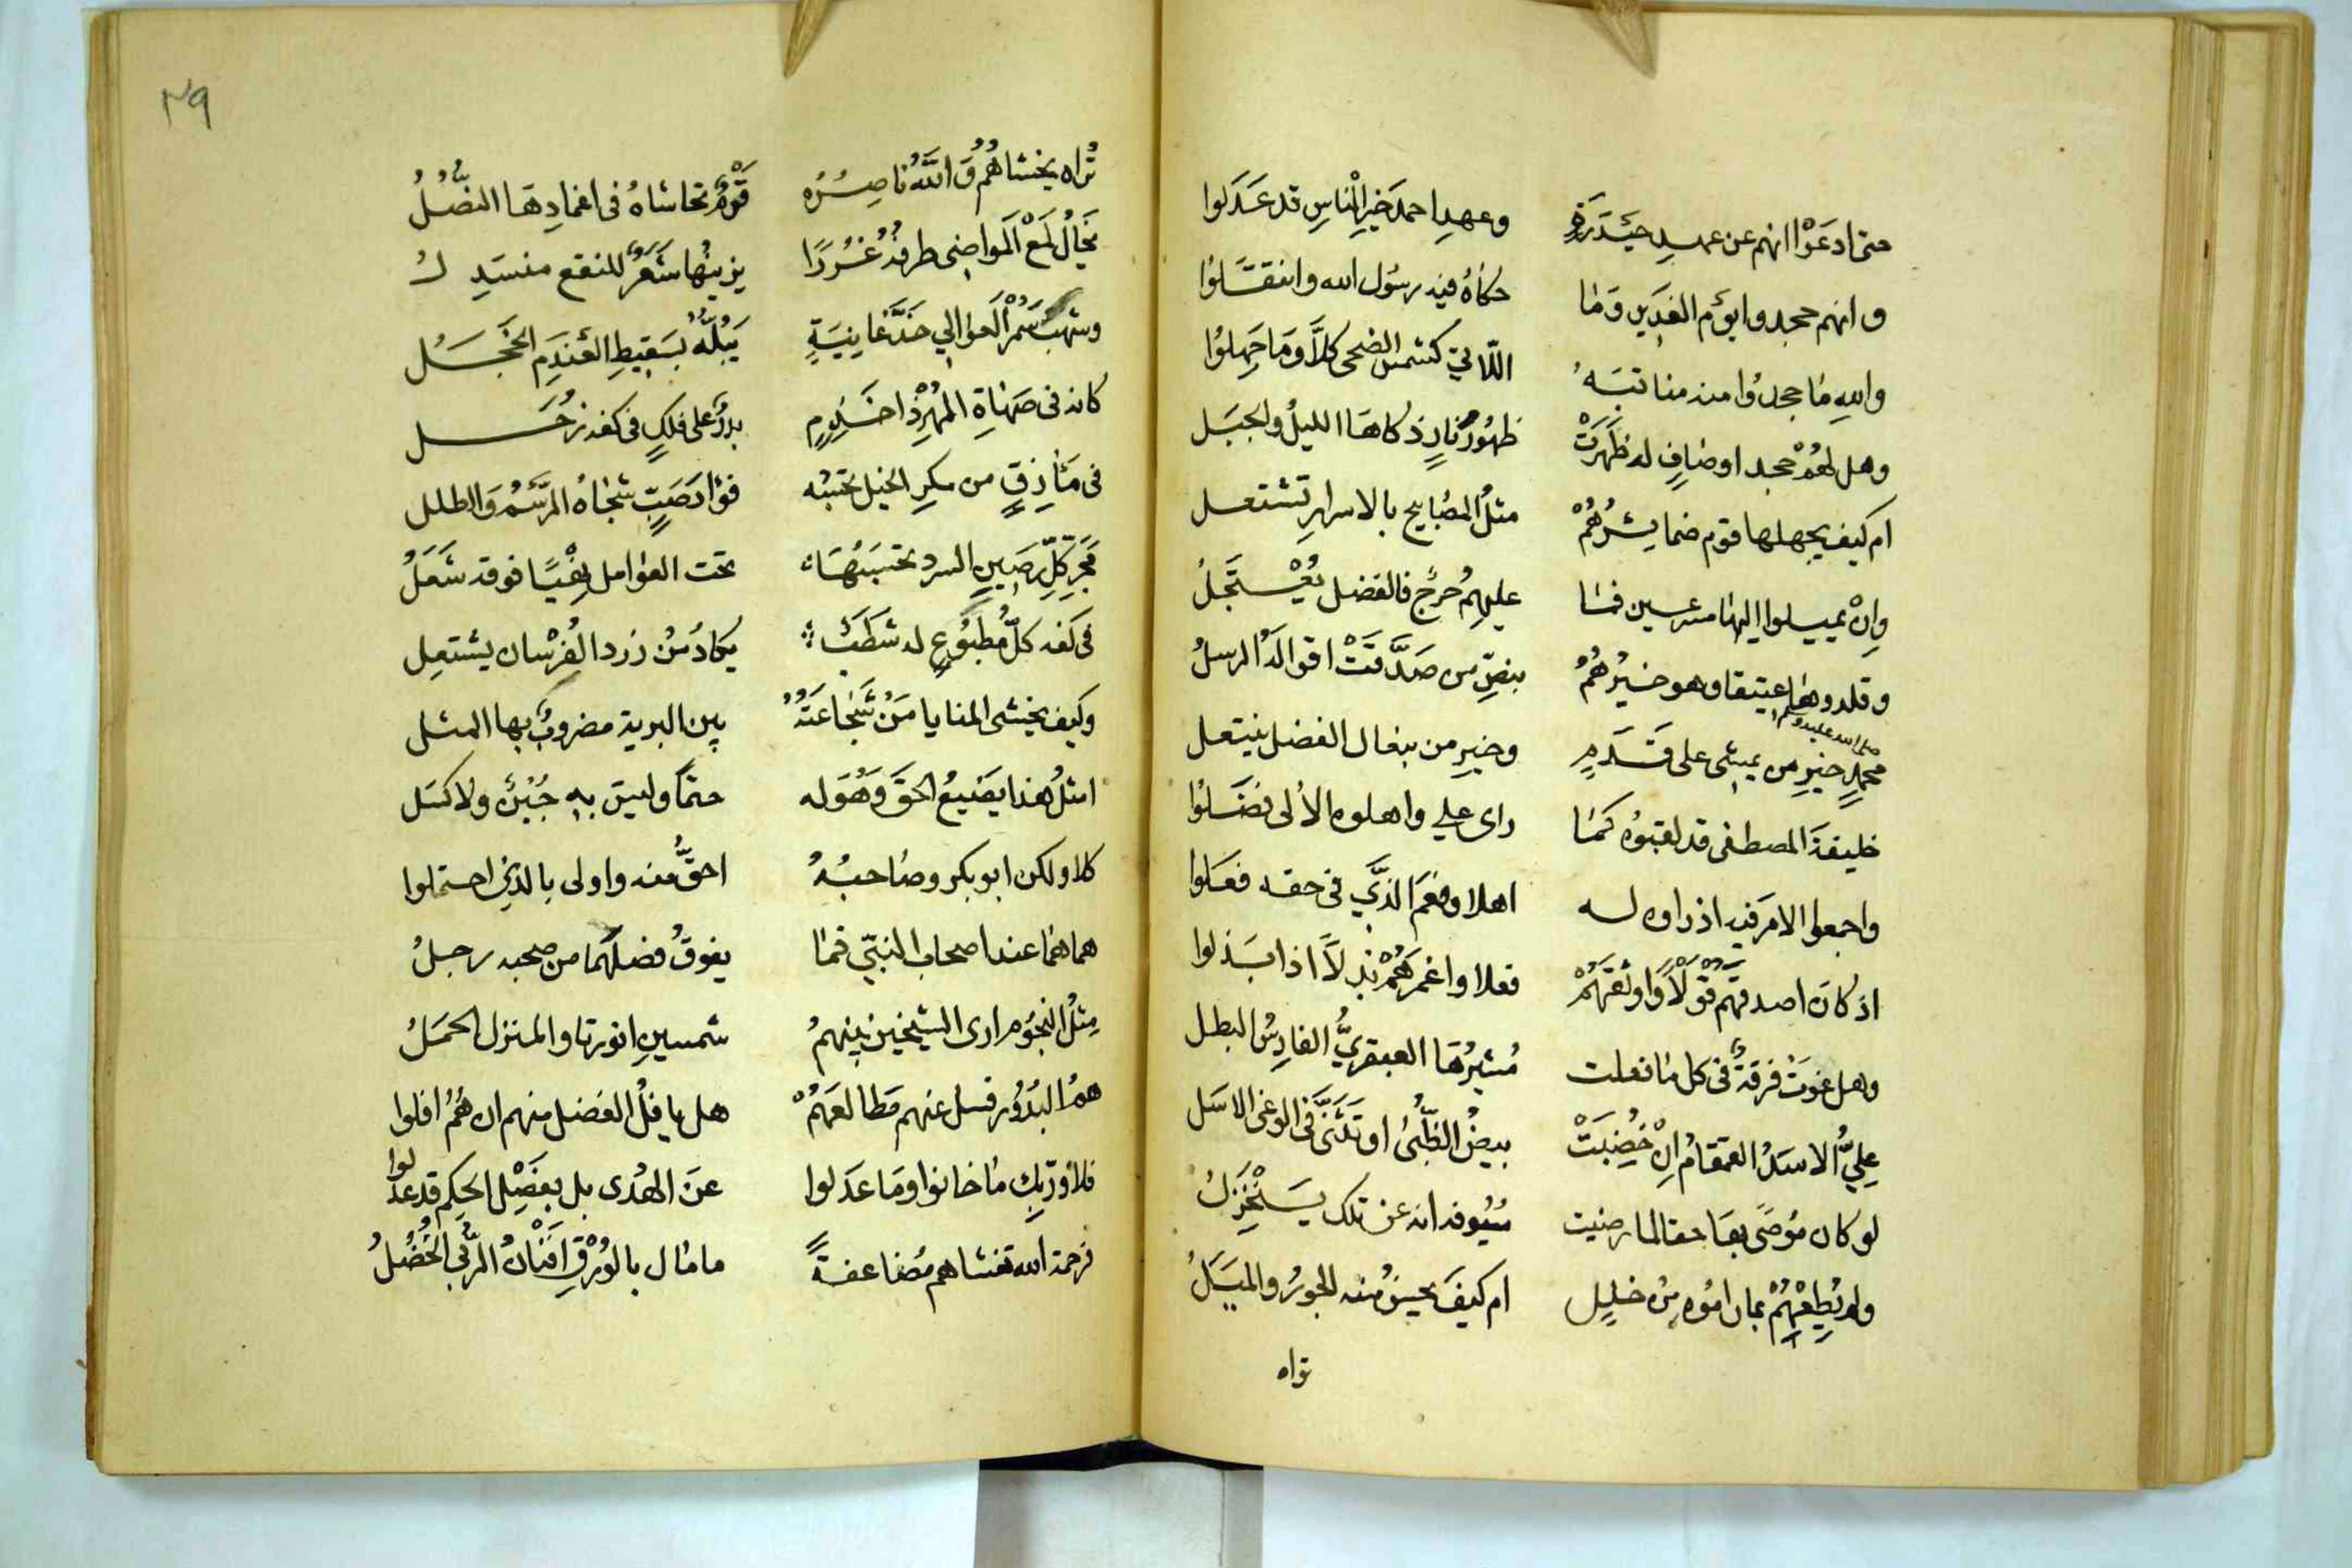 حتى ادعَوْا انهم عن عهدِ حيْدَرَةٍ وعهدِ احمدَ خيرِ الْناسِ قد عَدَلوا
وانهم جحدوا يوْم الغدِير وَما حكاهُ فيه رسُول الله وانتقلوا
واللهِ ما جحدُوا منه مناقبَهُ اللّاتي كشمسِ الضحى كلاَّ وَمَا جَهِلوُا
وهل لهُمْ جحد اوصافٍ له ظَهَرَتْ ظهُورَ نارٍ ذكاهَا الليلُ والجبَل
ام كيف يجهلها قوم ضمايرُهُمْ مثلُ المصَابيح بالاسرارِ تشتعل
وانْ يميلوا اليها مسرعين فما عليهِمُ حرَجٌ فالفضل يُسْتَجَلُ
وقلدوها عتيقا وهو خيرُهُمُ بنصِّ من صَدَّقَتْ اقوالَهُ الرسلُ
صلى الله عليه وسلم
محمدٍ خيرِ من يمشى على قَدَمٍ وخيرِ من بنعال الفضل ينتعل
خليفةَ المصطفى قد لقبوُه كمَا راى علي واهلوه الأُلى فضَلوُا
واجمعوا الامرَ فيه اذ راوه له اهلا ونعمَ الذَّي في حقه فعَلوا
اذ كانَ اصدقهُم قَوْلاً واوثقهُمْ فعلا واغمرَهُمْ بذلاً اذا بَذلوا
وهل غوَتْ فرقةٌ في كل ما فعلت مُشيرُهَا العبقريُّ الفارِسُ البطل
عليٌّ الاسَدُ القمقامُ انْ خُضِبَتْ بيضُ الظُّبىُ او تَثَنَّى في الوغى الاسَل
لو كان مُوصًى بهَا حقا لما رضيت سُيُوفه انه عن تلك يَنْخَزِلُ
ولم يُطِعْهُمْ بما راموُه منْ خللٍ ام كيفَ يحسنُ منه الجورُ والميَلُ
تراه
٢٩
تُراه يخشاهُمُ وَاللهُ ناصِرُه قَوْمٌ تحاشاهُ في اغمادِهَا النصُلُ
يخَالُ لَمْعَ الَمواضِى طرفهُ غُرَرًا يزينُها شَعَرٌ للنقع منسَدِلُ
وشهبَ سُمْرِ العوَالي خدَّ غانِيَةٍ يَبُلُّهُ بسَقِيطِ العَندَمِ الخَجَلُ
كانه في صهَاةِ المُهْرِ ذا خذمٍ بدرٌ على فلكٍ في كفه زُحَل
في مَأْزِقٍ من مكرِ الخيل تحسبُه فؤادَ صَبٍّ شجَاهُ الرَّسْمُ وَالطلل
فجرِّ كلِّ رصَينِ السرد تحسَبُهَا تحت العوَامل فيًّا فوقه شَعَلُ
في كفه كلُّ مطبُوعٍ له شطَبٌ يكادُ منْ زرد الفُرْسان يشتعِل
وكيف يخشى المنايا مَنْ شَجاعَتُهُ بين البرية مضروبٌ بها المثل
امثلُ هذا يضيعُ الحقُ وَهُوَ له حتمًا وليسَ بهِ جُبْنٌ ولا كسَل
كلا ولكن ابو بكر وصَاحبُهُ احقُّ منه واولى بالذي احتملوا
هما همَا عند اصحاب النبيّ فمَا يفوقُ فضلَهُما من صحبه رجلُ
مِثلُ النجوُم ارى الشيخين بينهمُ شمسينِ انورتا والمنزل الحمَلُ
همُ البدُوُر فسل عنهم مَطالعَهُمْ هل يافلُ الفضل منهم ان هُمُ افلوا
فلأوربِّك ما خانوا ومَا عدَلوا عنَ الهُدى بل بفَصْلِ الحكم قد عدلوا
فرحمة الله تغشاهم مُضاعفةً ما مَال بالوُرْقِ افنانُ الرُّبى الخُضُلُ